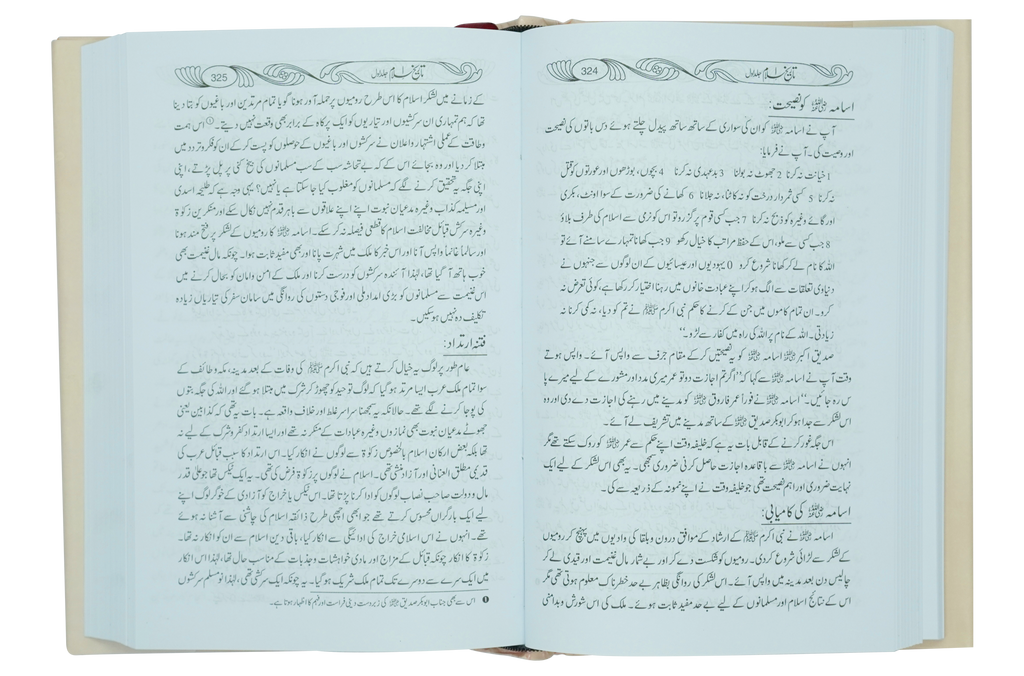 تاریخ اسلام جلد اول
324
اسامہ ؓ کو نصیحت:
آپ نے اسامہ ؓ کو ان کی سواری کے ساتھ ساتھ پیدل چلتے ہوئے دس باتوں کی نصیحت
اور وصیت کی۔ آپ نے فرمایا:
1 خیانت نہ کرنا 2 جھوٹ نہ بولنا 3 بدعہدی نہ کرنا 4 بچوں، بوڑھوں اور عورتوں کو قتل
نہ کرنا 5 کسی ثمردار درخت کو نہ کاٹنا، نہ جلانا 6 کھانے کی ضرورت کے سوا اونٹ، بکری
اور گائے وغیرہ کو ذبح نہ کرنا 7 جب کسی قوم پر گزرو تو اس کو نرمی سے اسلام کی طرف بلاؤ
8 جب کسی سے ملو، اس کے حفظ مراتب کا خیال رکھو 9 جب کھانا تمہارے سامنے آئے تو
اللہ کا نام لے کر کھانا شروع کرو 0 یہودیوں اور عیسائیوں کے ان لوگوں سے جنہوں نے
دنیاوی تعلقات سے الگ ہو کر اپنے عبادت خانوں میں رہنا اختیار کر رکھا ہے، کوئی تعرض نہ
کرو۔ ان تمام کاموں میں جن کے کرنے کا حکم نبی اکرم ﷺ نے تم کو دیا، نہ کمی کرنا نہ
زیادتی۔ اللہ کے نام پر اللہ کی راہ میں کفار سے لڑو۔“
صدیق اکبر ؓ اسامہ ؓ کو یہ نصیحتیں کر کے مقام جرف سے واپس آئے۔ واپس ہوتے
وقت آپ نے اسامہ ؓ سے کہا کہ ”اگر تم اجازت دو تو عمر میری مدد اور مشورے کے لیے میرے پا
س رہ جائیں۔“ اسامہ ؓ نے فوراً عمر فاروق ؓ کو مدینے میں رہنے کی اجازت دے دی اور وہ
اس لشکر سے جدا ہو کر ابوبکر صدیق ؓ کے ساتھ مدینے میں تشریف لے آئے۔
اس جگہ غور کرنے کے قابل بات یہ ہے کہ خلیفہ وقت اپنے حکم سے عمر ؓ کو روک سکتے تھے مگر
انہوں نے اسامہ ؓ سے باقاعدہ اجازت حاصل کرنی ضروری سمجھی۔ یہ بھی اس لشکر کے لیے ایک
نہایت ضروری اور اہم نصیحت تھی جو خلیفہ وقت نے اپنے نمونہ کے ذریعہ سے کی۔
اسامہ ؓ کی کامیابی:
اسامہ ؓ نے نبی اکرم ﷺ کے ارشاد کے موافق درون و بلقا کی وادیوں میں پہنچ کر رومیوں
کے لشکر سے لڑائی شروع کر دی۔ رومیوں کو شکست دے کر اور بے شمار مال غنیمت اور قیدی لے کر
چالیس دن بعد مدینہ میں واپس آئے۔ اس لشکر کی روانگی بظاہر بے حد خطرناک معلوم ہوتی تھی مگر
اس کے نتائج اسلام اور مسلمانوں کے لیے بے حد مفید ثابت ہوئے۔ ملک کی اس شورش و بدامنی
تاریخ اسلام جلد اول
325
کے زمانے میں لشکر اسلام کا اس طرح رومیوں پر حملہ آور ہونا گویا تمام مرتدین اور باغیوں کو بتا دینا
تھا کہ ہم تمہاری ان سرکشیوں اور تیاریوں کو ایک پرکاہ کے برابر بھی وقعت نہیں دیتے۔① اس ہمت
و طاقت کے عملی اشتہار و اعلان نے سرکشوں اور باغیوں کے حوصلوں کو پست کر کے ان کو فکر و تردد میں
مبتلا کر دیا اور وہ بجائے اس کے کہ بے تحاشہ سب کے سب مسلمانوں کی بیخ کنی پر پل پڑتے، اپنی
اپنی جگہ یہ تحقیق کرنے لگے کہ مسلمانوں کو مغلوب کیا جا سکتا ہے یا نہیں؟ یہی وجہ ہے کہ طلیحہ اسدی
اور مسیلمہ کذاب وغیرہ مدعیان نبوت اپنے اپنے علاقوں سے باہر قدم نہیں نکال سکے اور منکرین زکوٰۃ
وغیرہ سرکش قبائل مخالفت اسلام کا قطعی فیصلہ نہ کر سکے۔ اسامہ ؓ کا رومیوں کے لشکر پر فتح مند ہونا
اور سالماً غانماً واپس آنا اور اس خبر کا ملک میں شہرت پانا اور بھی مفید ثابت ہوا۔ چونکہ مال غنیمت بھی
خوب ہاتھ آ گیا تھا، لہٰذا آئندہ سرکشوں کو درست کرنا اور ملک کے امن و امان کو بحال کرنے میں
اس غنیمت سے مسلمانوں کو بڑی امداد ملی اور فوجی دستوں کی روانگی میں سامان سفر کی تیاریاں زیادہ
تکلیف دہ نہیں ہو سکیں۔
فتنہ ارتداد:
عام طور پر لوگ یہ خیال کرتے ہیں کہ نبی اکرم ﷺ کی وفات کے بعد مدینہ، مکہ و طائف کے
سوا تمام ملک عرب ایسا مرتد ہو گیا کہ لوگ توحید کو چھوڑ کر شرک میں مبتلا ہو گئے اور اللہ کی جگہ بتوں
کی پوجا کرنے لگے تھے۔ حالانکہ یہ سمجھنا سراسر غلط اور خلاف واقعہ ہے۔ بات یہ تھی کہ کذابین یعنی
جھوٹے مدعیان نبوت بھی نمازوں وغیرہ عبادات کے منکر نہ تھے اور ایسا ارتداد کفر و شرک کے لیے نہ
تھا بلکہ بعض ارکان اسلام بالخصوص زکوٰۃ سے لوگوں نے انکار کیا۔ اس ارتداد کا سبب قبائل عرب کی
قدیمی مطلق العنانی اور آزاد منشی تھی۔ اسلام نے لوگوں پر زکوٰۃ فرض کی تھی۔ یہ ایک ٹیکس تھا جو علی قدر
مال و دولت صاحب نصاب لوگوں کو ادا کرنا پڑتا تھا۔ اس ٹیکس یا خراج کو آزادی کے خوگر لوگ اپنے
لیے ایک بار گراں محسوس کرتے تھے جو ابھی اچھی طرح ذائقہ اسلام کی چاشنی سے آشنا نہ ہوئے
تھے۔ انہوں نے اس اسلامی خراج کی ادائیگی سے انکار کیا، باقی دین اسلام سے ان کو انکار نہ تھا۔
زکوٰۃ کا انکار چونکہ قبائل کے مزاج اور مادی خواہشات و جذبات کے مناسب حال تھا، لہٰذا اس انکار
میں ایک سرے سے دوسرے تک تمام ملک شریک ہو گیا۔ یہ چونکہ ایک سرکشی تھی، لہٰذا نو مسلم سرکشوں
❶ اس سے بھی جناب ابوبکر صدیق ؓ کی زبردست دینی فراست اور فہم کا اظہار ہوتا ہے۔